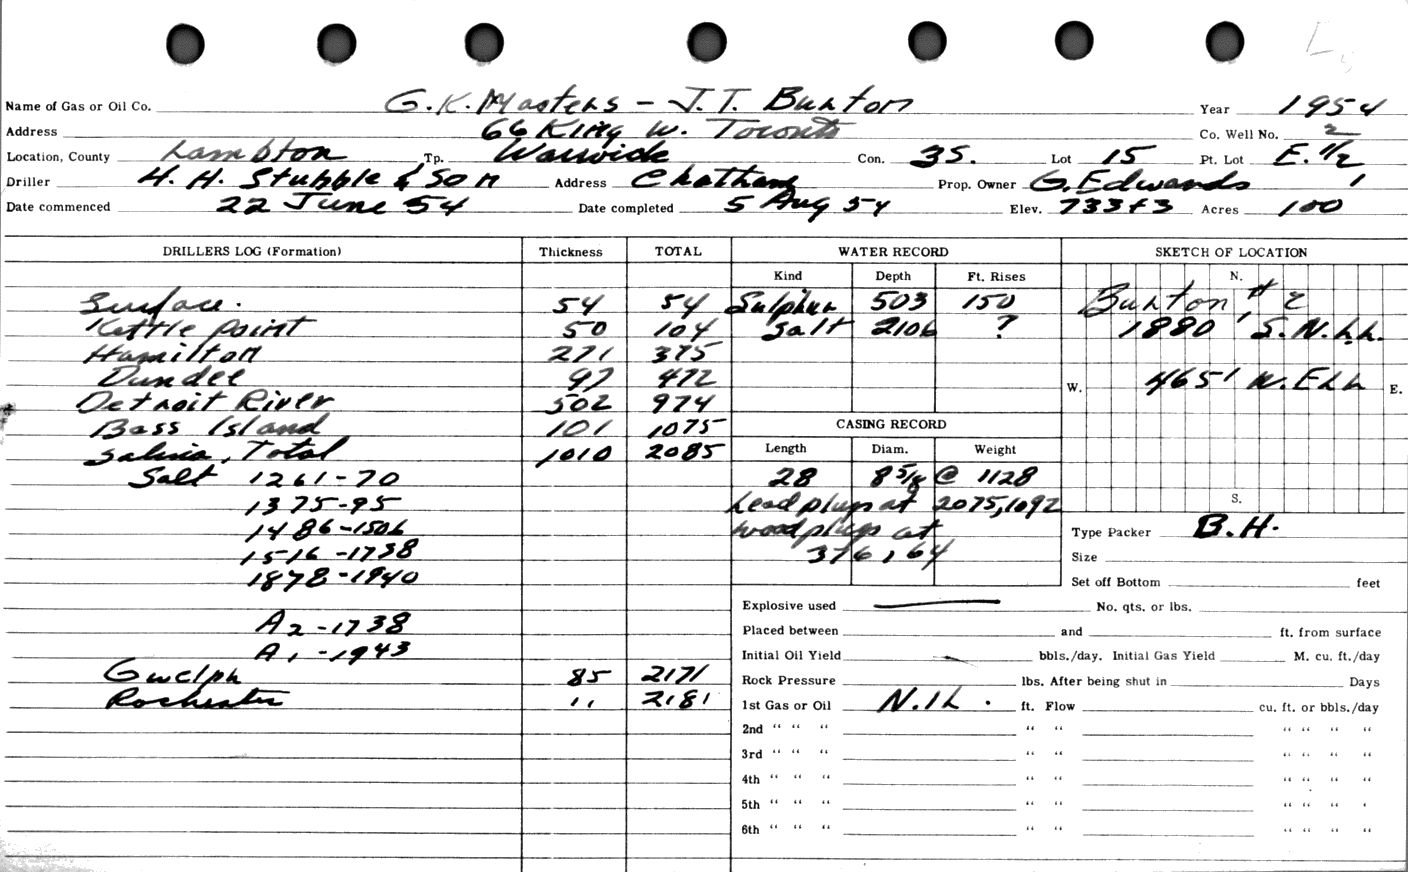 Name of Gas or Oil Co. G. K. Masters - J. T. Burton Year 1954
Address 66 King W. Toronto Co. Well No. 2
Location, County Lambton Tp. Warwick Con. 3S. Lot 15 Pt. Lot E. 1/2
Driller H. H. Stubble & Son Address Chatham Prop. Owner G. Edwards
Date commenced 22 June 54 Date completed 5 Aug 54 Elev. 733+3 Acres 100
DRILLERS LOG (Formation) Thickness TOTAL WATER RECORD SKETCH OF LOCATION
Kind Depth Ft. Rises N.
Surface. 54 54 Sulphur 503 150 Burton, # 2
Kettle Point 50 104 Salt 2106 ? 1880' S. N.L.L.
Hamilton 271 375
Dundee 97 472 W. 465' W. ELL E.
Detroit River 502 974
Bass Island 101 1075 CASING RECORD
Salina, Total 1010 2085 Length Diam. Weight
Salt 1261-70 28 8 5/8 @ 1128
1375-95 Lead plugs at 2075, 1092 S.
1486-1506 wood plugs at Type Packer B.H.
1516-1738 376, 64 Size
1878-1940 Set off Bottom feet
Explosive used — No. qts. or lbs.
A2-1738 Placed between and ft. from surface
A1-1943 Initial Oil Yield bbls./day. Initial Gas Yield M. cu. ft./day
Guelph 85 2171 Rock Pressure lbs. After being shut in Days
Rochester 11 2181 1st Gas or Oil N.IL. ft. Flow cu. ft. or bbls./day
2nd " " " " " " " " "
3rd " " " " " " " " "
4th " " " " " " " " "
5th " " " " " " " " '
6th " " " " " " " " "